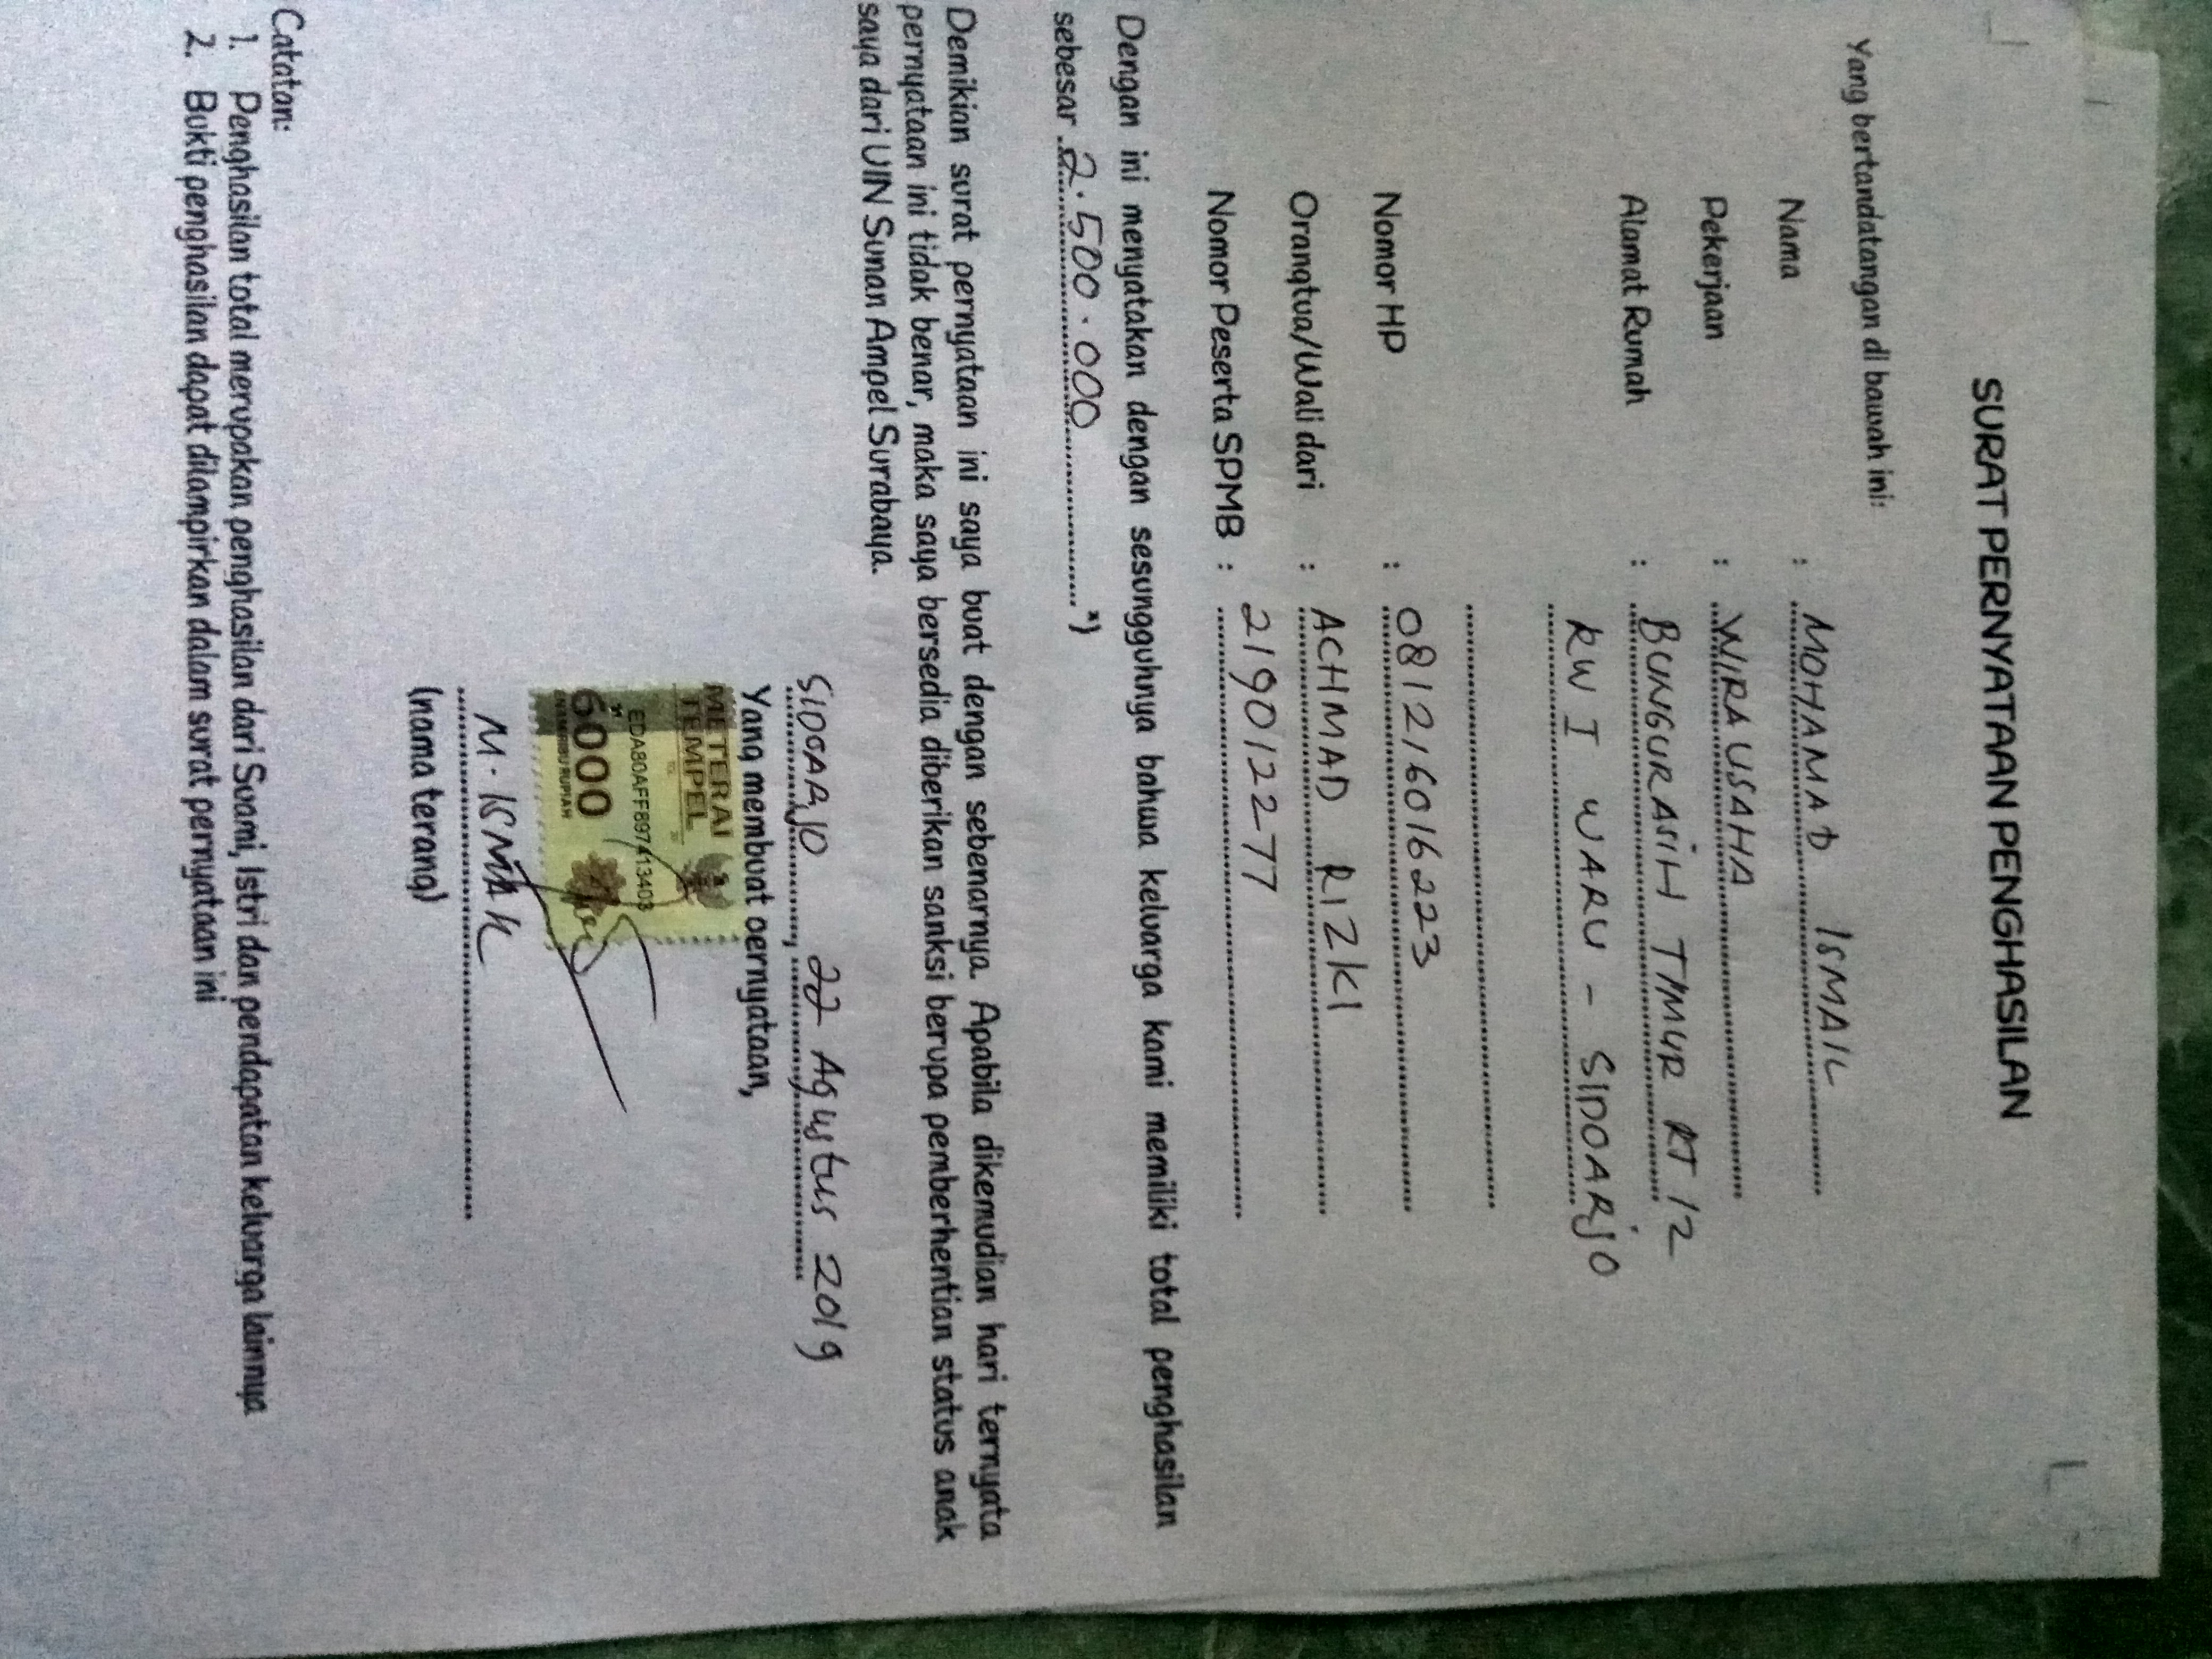 SURAT PERNYATAAN PENGHASILAN
Yang bertandatangan di bawah ini:
Nama : MOHAMAD ISMAIL
Pekerjaan : WIRAUSAHA
Alamat Rumah : BUNGURASIH TIMUR RT 12
RW I WARU - SIDOARJO
Nomor HP : 081216016223
Orangtua/Wali dari : ACHMAD RIZKI
Nomor Peserta SPMB : 2190112277
Dengan ini menyatakan dengan sesungguhnya bahwa keluarga kami memiliki total penghasilan
sebesar 2.500.000 *)
Demikian surat pernyataan ini saya buat dengan sebenarnya. Apabila dikemudian hari ternyata
pernyataan ini tidak benar, maka saya bersedia diberikan sanksi berupa pemberhentian status anak
saya dari UIN Sunan Ampel Surabaya.
SIDOARJO, 22 Agustus 2019
Yang membuat pernyataan,
METERAI
TEMPEL
EDA80AFF897413403
6000
ENAM RIBU RUPIAH
M. ISMAIL
(nama terang)
Catatan:
1. Penghasilan total merupakan penghasilan dari Suami, Istri dan pendapatan keluarga lainnya
2. Bukti penghasilan dapat dilampirkan dalam surat pernyataan ini